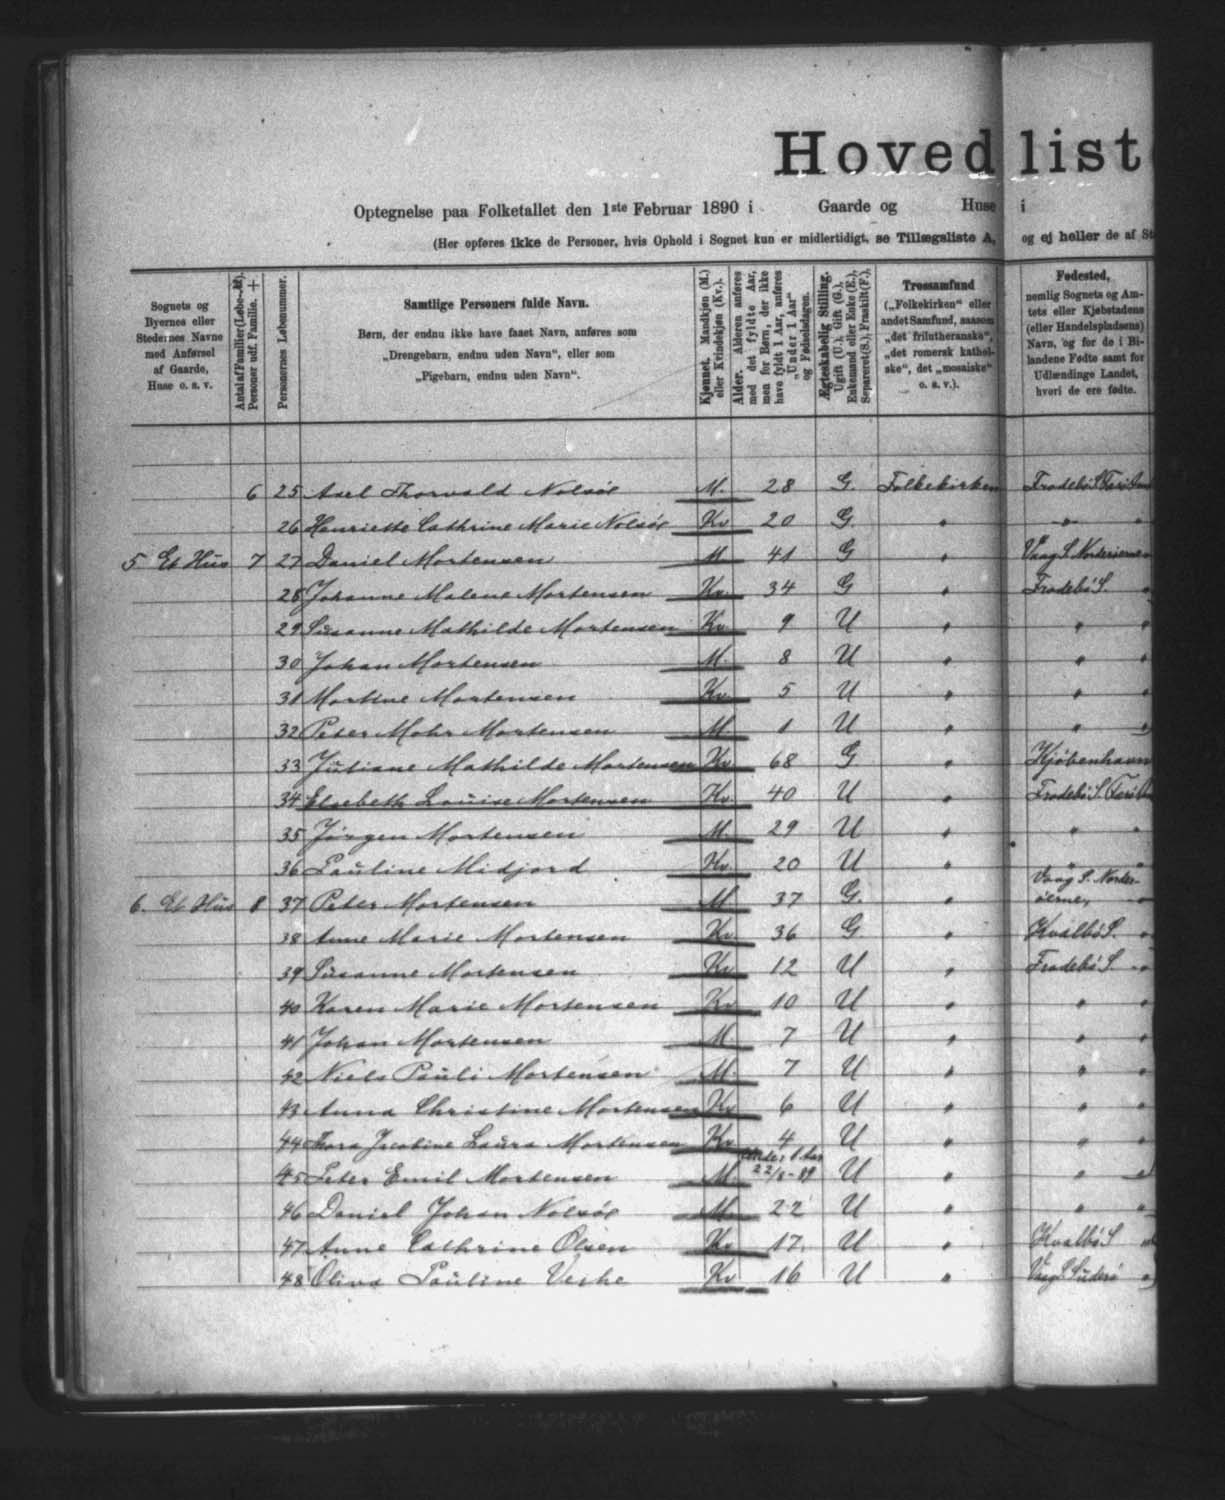 Hovedlist
Optegnelse paa Folketallet den 1ste Februar 1890 i Gaarde og Huse i
(Her opføres ikke de Personer, hvis Ophold i Sognet kun er midlertidigt, se Tillægsliste A, og ej heller de af St
Sognets og Byernes eller Stedernes Navne med Anførsel af Gaarde, Huse o. s. v.
Antal af Familier (Løbe-Nr). Personer udf. Familie. +
Personernes Løbenummer.
Samtlige Personers fulde Navn.
Børn, der endnu ikke have faaet Navn, anføres som
„Drengebarn, endnu uden Navn“, eller som
„Pigebarn, endnu uden Navn“.
Kjønnet. Mandkjøn (M.) eller Kvindekjøn (Kv.).
Alder. Alderen anføres med det fyldte Aar, men for Børn, der ikke have fyldt 1 Aar, anføres „Under 1 Aar“ og Fødselsdagen.
Ægteskabelig Stilling. Ugift (U.), Gift (G.), Enkemand eller Enke (E.), Separeret (S.), Fraskilt (F.).
Trossamfund
(„Folkekirken“ eller andet Samfund, saasom „det frilutheranske“, „det romersk katholske“, det „mosaiske“ o. s. v.).
Fødested,
nemlig Sognets og Amtets eller Kjøbstadens (eller Handelspladsens) Navn, og for de i Bilandene Fødte samt for Udlændinge Landet, hvori de ere fødte.
6 25 Axel Thorvald Nolsøe M. 28 G. Folkekirken Frodebø S.
26 Henriette Cathrine Marie Nolsøe Kv 20 G. " -"- "
5 Et Hus 7 27 Daniel Mortensen M 41 G " Vaag S. Norderøerne
28 Johanne Malene Mortensen Kv. 34 G " Frodebø S. "
29 Susanne Mathilde Mortensen Kv. 9 U " " "
30 Johan Mortensen M. 8 U " " "
31 Martine Mortensen Kv. 5 U " " "
32 Peter Mohr Mortensen M 1 U " " "
33 Juliane Mathilde Mortensen Kv 68 G. " Kjøbenhavn
34 Elsebeth Louise Mortensen Kv. 40 U " Frodebø S.
35 Jørgen Mortensen M. 29 U " " "
36 Pauline Midjord Kv. 20 U " " "
6. Et Hus 8 37 Peter Mortensen M 37 G. " Vaag S. Norderøerne,
38 Anne Marie Mortensen Kv 36 G. " Kvalbø S. "
39 Susanne Mortensen Kv 12 U " Frodebø S. "
40 Karen Marie Mortensen Kv 10 U " " "
41 Johan Mortensen M. 7 U " " "
42 Niels Pauli Mortensen M. 7 U " " "
43 Anna Christine Mortensen Kv 6 U " " "
44 Thora Jacobine Laura Mortensen Kv 4 U " " "
45 Peter Emil Mortensen M. Under 1 Aar 22/8-89 U " " "
46 Daniel Johan Nolsøe M. 22 U " " "
47 Anne Cathrine Olsen Kv. 17. U " Kvalbø S "
48 Oliva Pauline Veshe Kv 16 U " Vaag S Suderø "